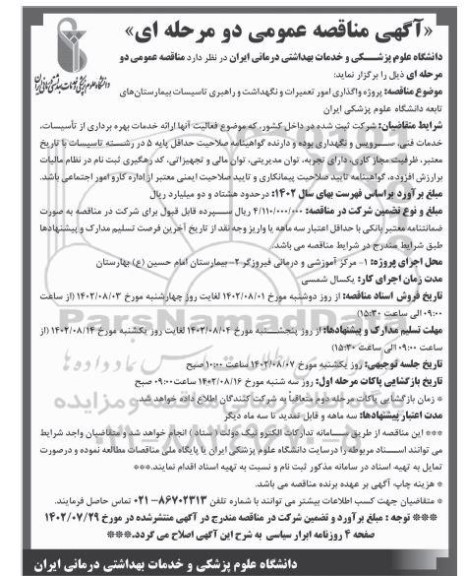 «آگهی مناقصه عمومی دو مرحله ای»
دانشگاه علوم پزشکی و خدمات بهداشتی درمانی ایران
دانشگاه علوم پزشکی و خدمات بهداشتی درمانی ایران در نظر دارد مناقصه عمومی دو
مرحله ای ذیل را برگزار نماید:
موضوع مناقصه: پروژه واگذاری امور تعمیرات و نگهداشت و راهبری تاسیسات بیمارستان‌های
تابعه دانشگاه علوم پزشکی ایران
شرایط متقاضیان: شرکت ثبت شده در داخل کشور، که موضوع فعالیت آنها ارائه خدمات بهره برداری از تأسیسات،
خدمات فنی، سرویس و نگهداری بوده و دارنده گواهینامه صلاحیت حداقل پایه ۵ در رشته تاسیسات با تاریخ
معتبر، ظرفیت مجاز کاری، دارای تجربه، توان مدیریتی، توان مالی و تجهیزاتی، کد رهگیری ثبت نام در نظام مالیات
برارزش افزوده، گواهینامه تایید صلاحیت پیمانکاری و تایید صلاحیت ایمنی معتبر از اداره کار و امور اجتماعی باشد.
مبلغ برآورد براساس فهرست بهای سال ۱۴۰۲: درحدود هشتاد و دو میلیارد ریال
مبلغ و نوع تضمین شرکت در مناقصه: ۴/۱۱۰/۰۰۰/۰۰۰ ریال سپرده قابل قبول برای شرکت در مناقصه به صورت
ضمانتنامه معتبر بانکی با حداقل اعتبار سه ماهه یا واریز وجه نقد از تاریخ آخرین فرصت تسلیم مدارک و پیشنهادها
طبق شرایط مندرج در شرایط مناقصه می باشد.
محل اجرای پروژه: ۱- مرکز آموزشی و درمانی فیروزگر ۲- بیمارستان امام حسین (ع) بهارستان
مدت زمان اجرای کار: یکسال شمسی
تاریخ فروش اسناد مناقصه: از روز دوشنبه مورخ ۱۴۰۲/۰۸/۰۱ لغایت روز چهارشنبه مورخ ۱۴۰۲/۰۸/۰۳ (از ساعت
۰۹:۰۰ الی ساعت ۱۵:۳۰)
مهلت تسلیم مدارک و پیشنهادها: از روز پنجشنبه مورخ ۱۴۰۲/۰۸/۰۴ لغایت روز یکشنبه مورخ ۱۴۰۲/۰۸/۱۴ (از
ساعت ۰۹:۰۰ الی ساعت ۱۵:۳۰)
تاریخ جلسه توجیهی: روز یکشنبه مورخ ۱۴۰۲/۰۸/۰۷ ساعت ۱۰:۰۰ صبح
تاریخ بازگشایی پاکات مرحله اول: روز سه شنبه مورخ ۱۴۰۲/۰۸/۱۶ ساعت ۰۹:۰۰ صبح
* زمان بازگشایی پاکات مرحله دوم متعاقباً به شرکت کنندگان اطلاع داده خواهد شد.
مدت اعتبار پیشنهادها: سه ماهه و قابل تمدید تا سه ماه دیگر
*** این مناقصه از طریق سامانه تدارکات الکترونیک دولت (ستاد) انجام خواهد شد و متقاضیان واجد شرایط
می توانند اسناد مربوطه را درسایت دانشگاه علوم پزشکی ایران یا پایگاه ملی مناقصات مطالعه نموده و درصورت
تمایل به تهیه اسناد در سامانه مذکور ثبت نام و نسبت به تهیه اسناد اقدام نمایند.***
* هزینه چاپ آگهی بر عهده برنده مناقصه می باشد.
* متقاضیان جهت کسب اطلاعات بیشتر می توانند با شماره تلفن ۸۶۷۰۲۳۱۳-۰۲۱ تماس حاصل فرمایند.
*** توجه : مبلغ برآورد و تضمین شرکت در مناقصه مندرج در آگهی منتشرشده در مورخ ۱۴۰۲/۰۷/۲۹
صفحه ۴ روزنامه ابرار سیاسی به شرح این آگهی اصلاح می گردد.***
دانشگاه علوم پزشکی و خدمات بهداشتی درمانی ایران
ParsNamadData